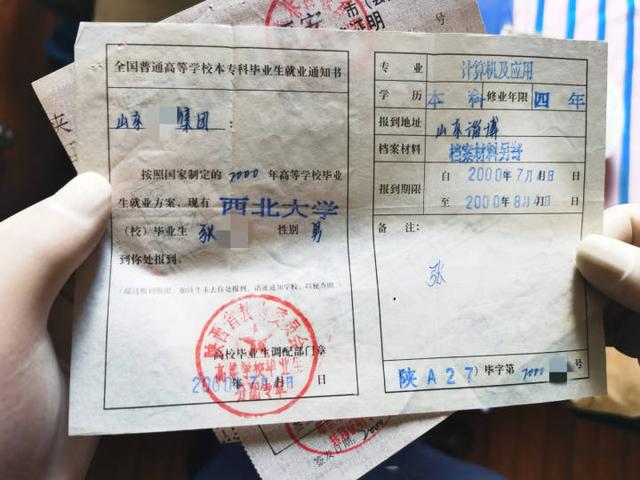 全国普通高等学校本专科毕业生就业通知书
山东 集团：
按照国家制定的2000年高等学校毕业
生就业方案，现有 西北大学
（校）毕业生 张 性别 男
到你处报到。
（超过报到期限，如该生未去你处报到，请速通知学校，以便查明。）
陕西省教育委员会
高校毕业生调配部门章
2000年7月 日
专业 计算机及应用
学历 本科 修业年限 四年
报到地址 山东淄博
档案材料 档案材料另寄
报到期限 自2000年7月 日
至2000年8月 日
备注：
张
陕A27）毕字第2000 号
号
签发日期